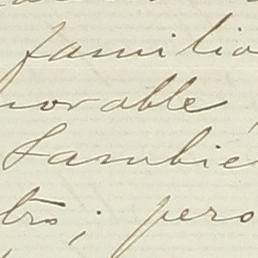 familia
norable,
Tambié
tro; pero